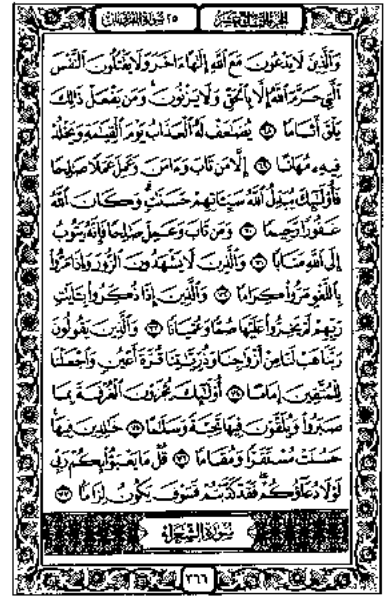 الجزء التاسع عشر ٢٥ سورة الفرقان
وَالَّذِينَ لَا يَدْعُونَ مَعَ اللَّهِ إِلَٰهًا ءَاخَرَ وَلَا يَقْتُلُونَ النَّفْسَ
الَّتِي حَرَّمَ اللَّهُ إِلَّا بِالْحَقِّ وَلَا يَزْنُونَ وَمَن يَفْعَلْ ذَٰلِكَ
يَلْقَ أَثَامًا ٦٨ يُضَٰعَفْ لَهُ الْعَذَابُ يَوْمَ الْقِيَٰمَةِ وَيَخْلُدْ
فِيهِۦ مُهَانًا ٦٩ إِلَّا مَن تَابَ وَءَامَنَ وَعَمِلَ عَمَلًا صَٰلِحًا
فَأُولَٰئِكَ يُبَدِّلُ اللَّهُ سَيِّـَٔاتِهِمْ حَسَنَٰتٍ وَكَانَ اللَّهُ
غَفُورًا رَّحِيمًا ٧٠ وَمَن تَابَ وَعَمِلَ صَٰلِحًا فَإِنَّهُ يَتُوبُ
إِلَى اللَّهِ مَتَابًا ٧١ وَالَّذِينَ لَا يَشْهَدُونَ الزُّورَ وَإِذَا مَرُّوا
بِاللَّغْوِ مَرُّوا كِرَامًا ٧٢ وَالَّذِينَ إِذَا ذُكِّرُوا بِـَٔايَٰتِ
رَبِّهِمْ لَمْ يَخِرُّوا عَلَيْهَا صُمًّا وَعُمْيَانًا ٧٣ وَالَّذِينَ يَقُولُونَ
رَبَّنَا هَبْ لَنَا مِنْ أَزْوَٰجِنَا وَذُرِّيَّٰتِنَا قُرَّةَ أَعْيُنٍ وَاجْعَلْنَا
لِلْمُتَّقِينَ إِمَامًا ٧٤ أُولَٰئِكَ يُجْزَوْنَ الْغُرْفَةَ بِمَا
صَبَرُوا وَيُلَقَّوْنَ فِيهَا تَحِيَّةً وَسَلَٰمًا ٧٥ خَٰلِدِينَ فِيهَا
حَسُنَتْ مُسْتَقَرًّا وَمُقَامًا ٧٦ قُلْ مَا يَعْبَؤُا بِكُمْ رَبِّي
لَوْلَا دُعَاؤُكُمْ فَقَدْ كَذَّبْتُمْ فَسَوْفَ يَكُونُ لِزَامًا ٧٧
سورة الشعراء
٣٦٦